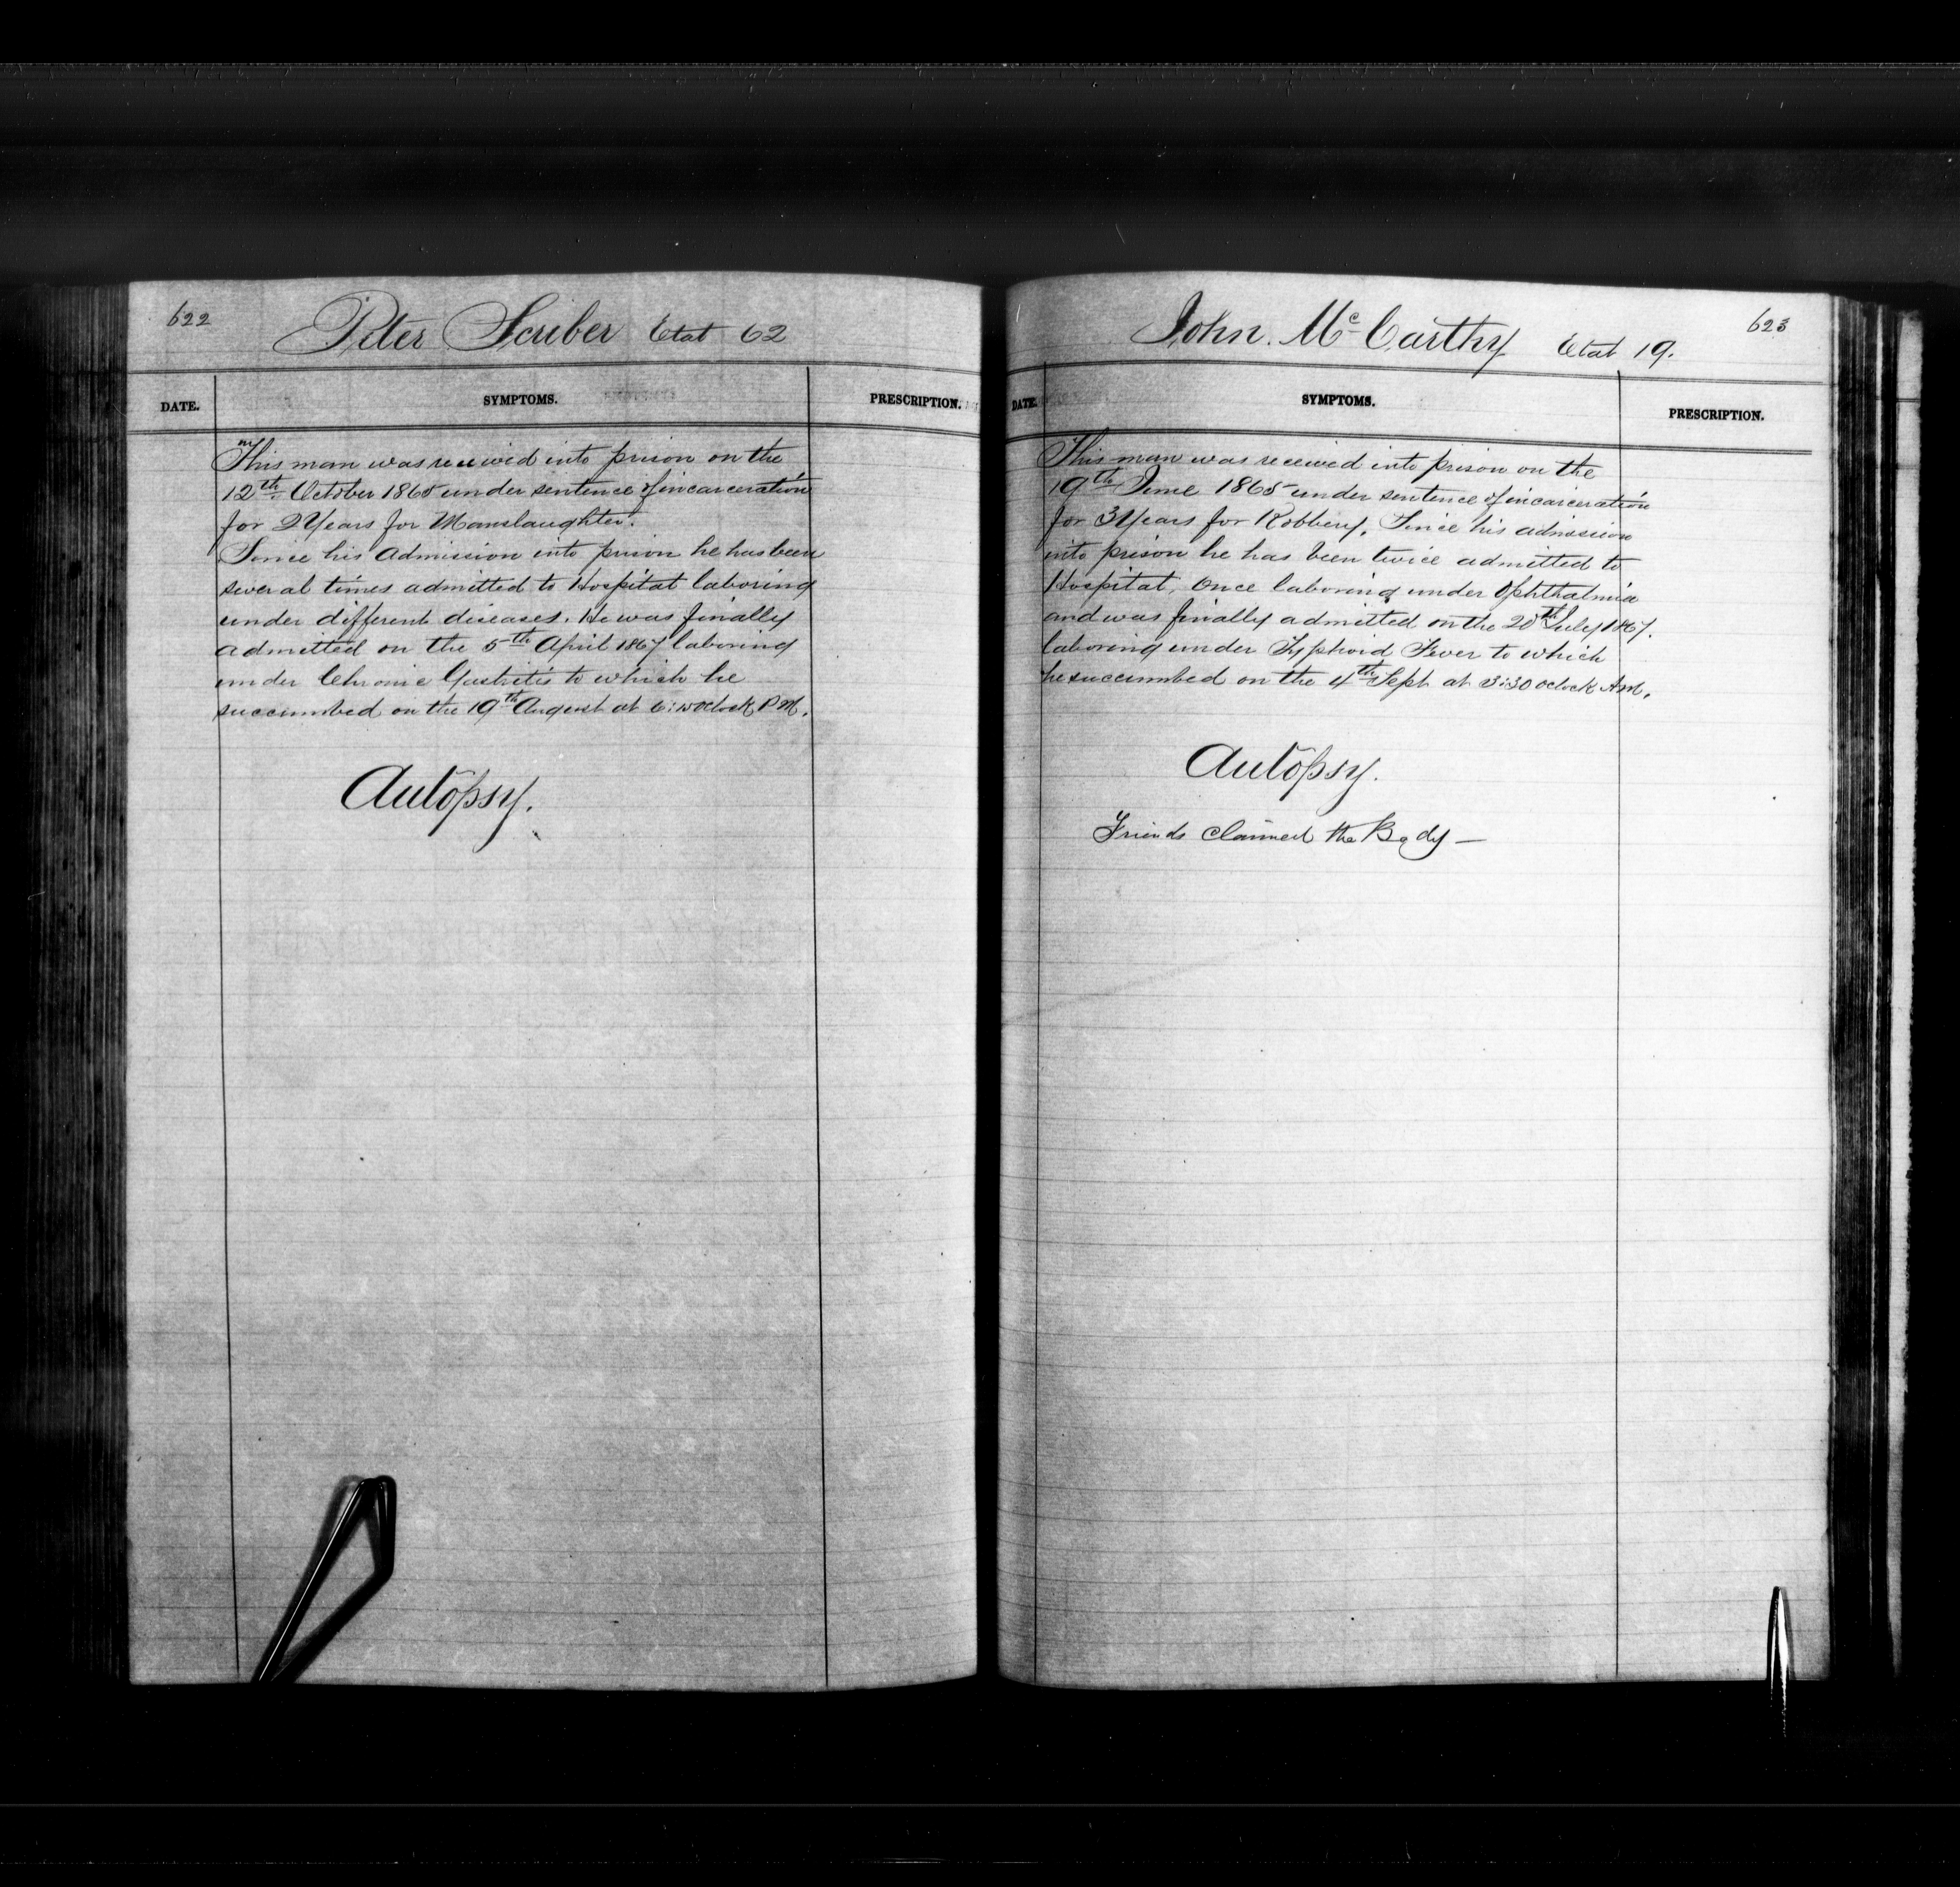 622
Peter Scriber Etat 62
DATE. SYMPTOMS. PRESCRIPTION.
This man was received into prison on the
12th October 1865 under sentence of incarceration
for 2 Years for Manslaughter.
Since his admission into prison he has been
several times admitted to Hospital laboring
under different diseases. He was finally
admitted on the 5th April 1867 laboring
under Chronic Gastritis to which he
succumbed on the 19th August at oclock P M.
Autopsy.
623
John. Mc Carthy Etat 19.
DATE. SYMPTOMS. PRESCRIPTION.
This man was received into prison on the
19th June 1865 under sentence of incarceration
for 3 Years for Robbery. Since his admission
into prison he has been twice admitted to
Hospital, Once laboring under Ophthalmia
and was finally admitted on the 20th July 1867.
laboring under Typhoid Fever to which
he succumbed on the 4th Sept at 3:30 oclock A.M.
Autopsy.
Friends claimed the Body —